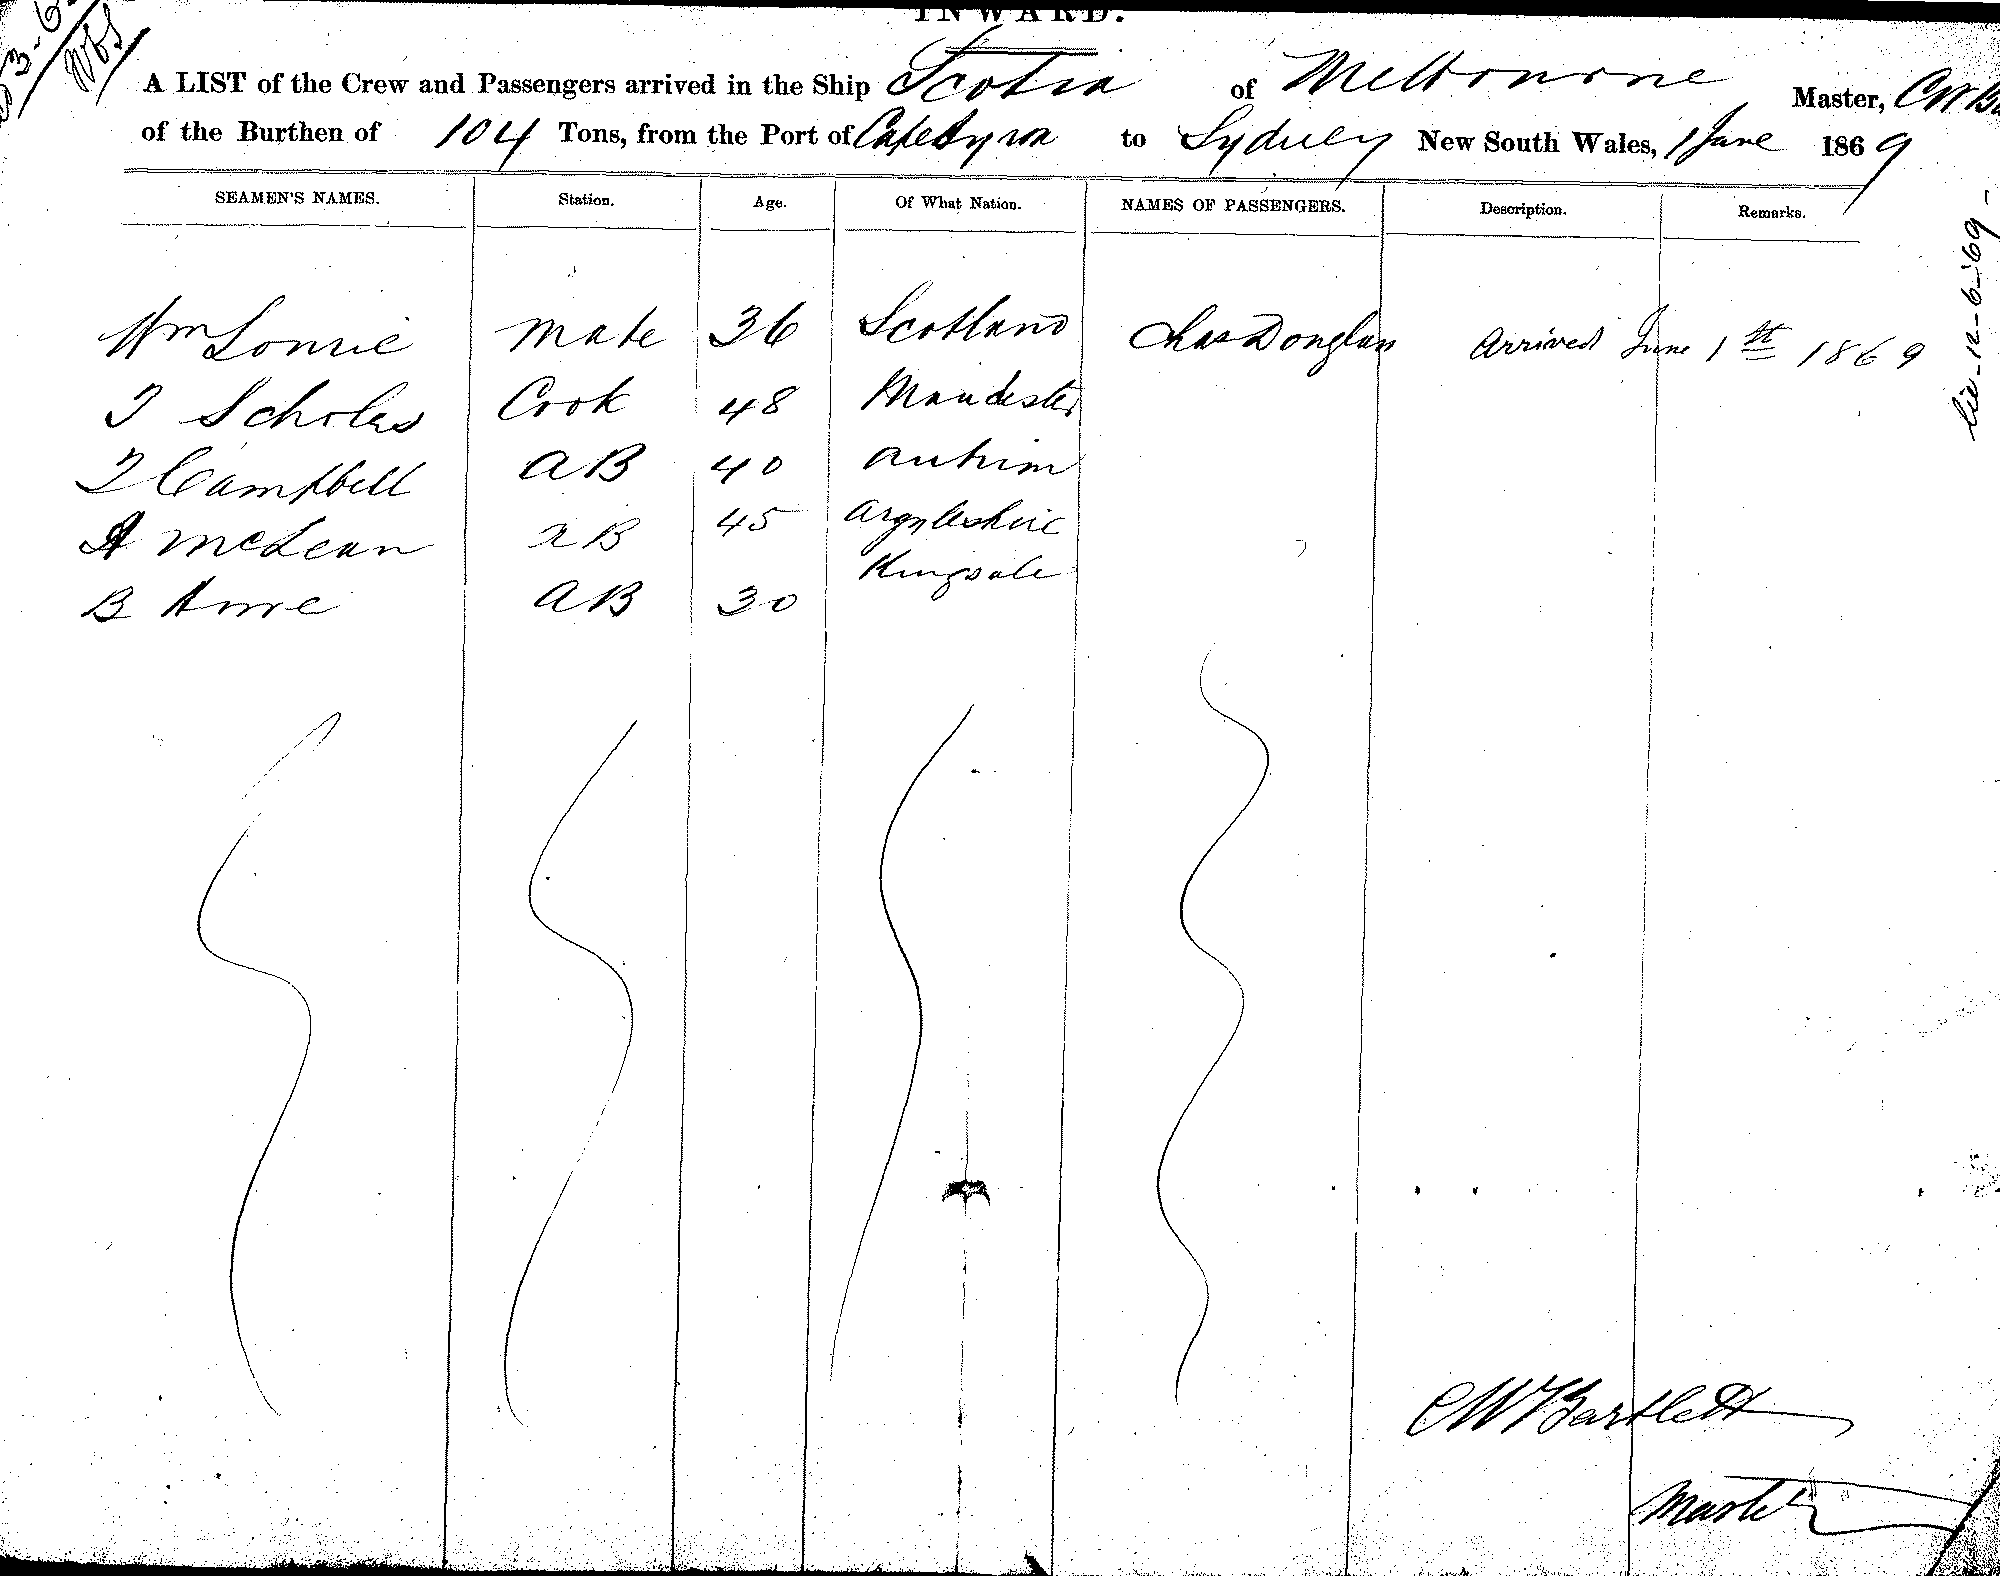 INWARD.
A LIST of the Crew and Passengers arrived in the Ship Scotia of Melbourne Master, CW
of the Burthen of 104 Tons, from the Port of Cape Byron to Sydney New South Wales, 1 June 1869
SEAMEN'S NAMES. Station. Age. Of What Nation. NAMES OF PASSENGERS. Description. Remarks.
Wm Lourie Mate 36 Scotland Chas Douglas Arrived June 1th 1869
T Scholes Cook 48 Manchester
T Campbell AB 40 Antrim
A McLean AB 45 Argyleshire
B AB 30 Kingsale
CW Bartlett
Master
12-6-69